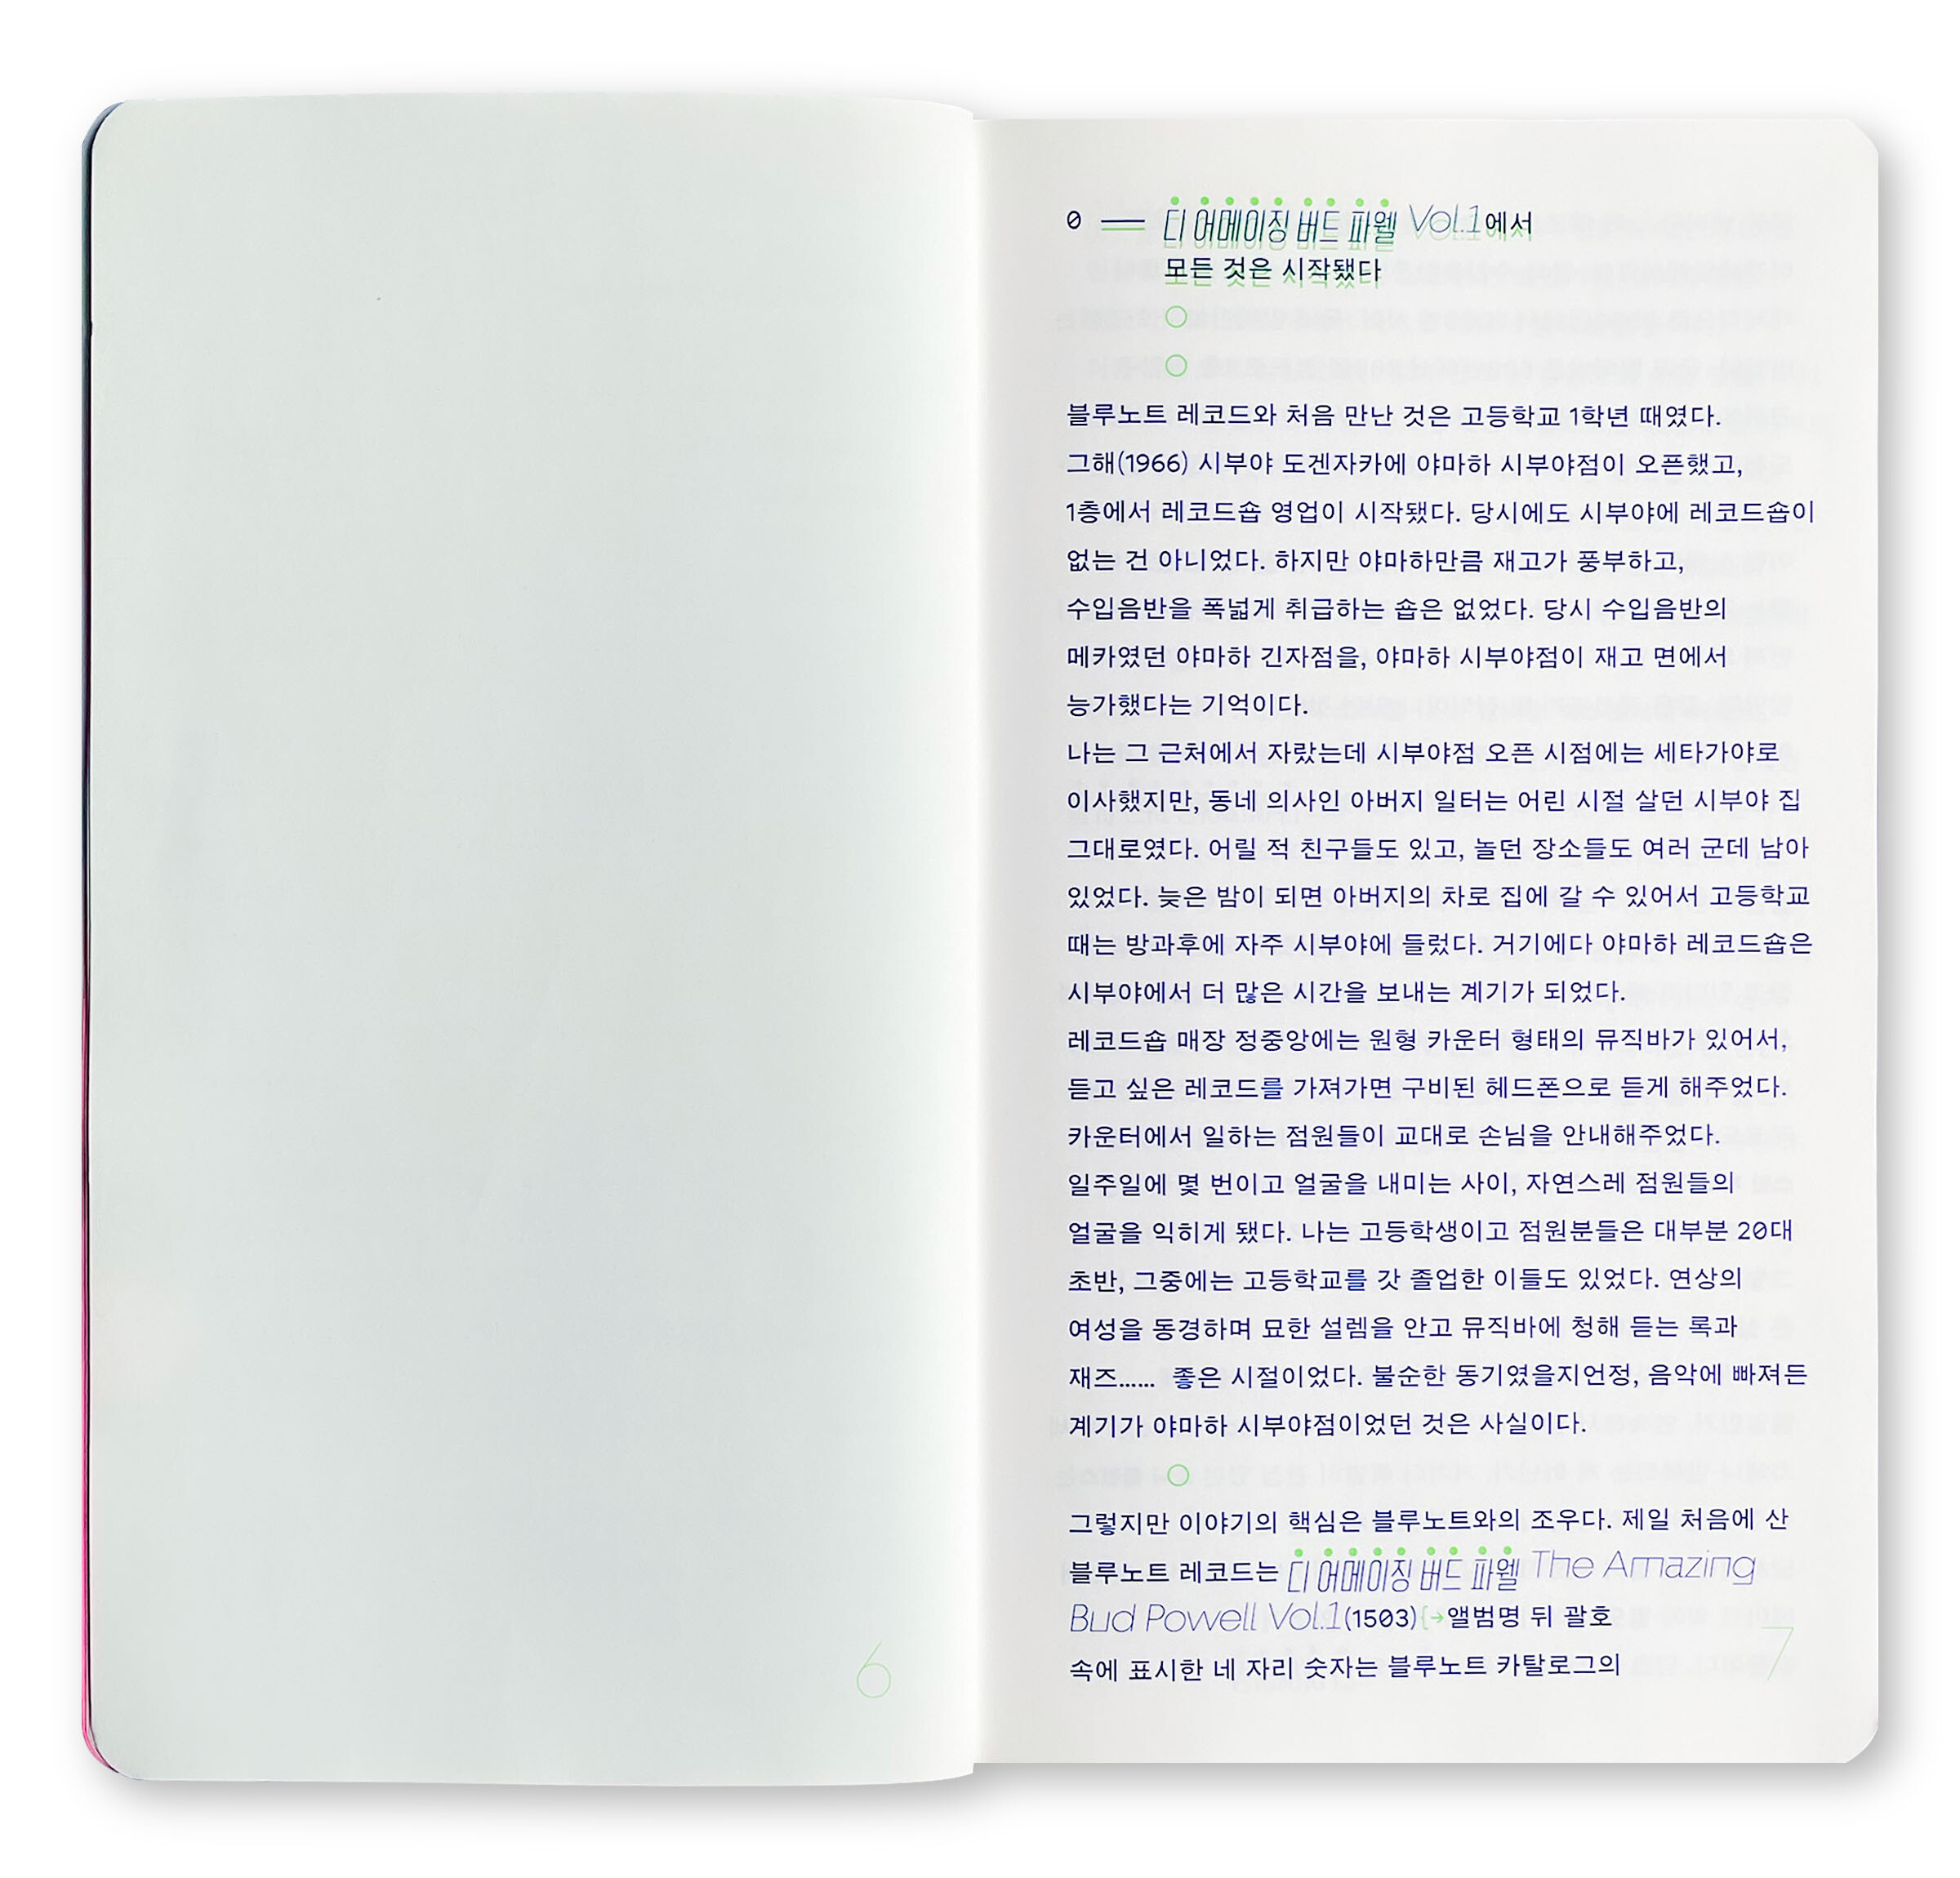 6
0 디 어메이징 버드 파웰 Vol.1에서
모든 것은 시작됐다
블루노트 레코드와 처음 만난 것은 고등학교 1학년 때였다.
그해(1966) 시부야 도겐자카에 야마하 시부야점이 오픈했고,
1층에서 레코드숍 영업이 시작됐다. 당시에도 시부야에 레코드숍이
없는 건 아니었다. 하지만 야마하만큼 재고가 풍부하고,
수입음반을 폭넓게 취급하는 숍은 없었다. 당시 수입음반의
메카였던 야마하 긴자점을, 야마하 시부야점이 재고 면에서
능가했다는 기억이다.
나는 그 근처에서 자랐는데 시부야점 오픈 시점에는 세타가야로
이사했지만, 동네 의사인 아버지 일터는 어린 시절 살던 시부야 집
그대로였다. 어릴 적 친구들도 있고, 놀던 장소들도 여러 군데 남아
있었다. 늦은 밤이 되면 아버지의 차로 집에 갈 수 있어서 고등학교
때는 방과후에 자주 시부야에 들렀다. 거기에다 야마하 레코드숍은
시부야에서 더 많은 시간을 보내는 계기가 되었다.
레코드숍 매장 정중앙에는 원형 카운터 형태의 뮤직바가 있어서,
듣고 싶은 레코드를 가져가면 구비된 헤드폰으로 듣게 해주었다.
카운터에서 일하는 점원들이 교대로 손님을 안내해주었다.
일주일에 몇 번이고 얼굴을 내미는 사이, 자연스레 점원들의
얼굴을 익히게 됐다. 나는 고등학생이고 점원분들은 대부분 20대
초반, 그중에는 고등학교를 갓 졸업한 이들도 있었다. 연상의
여성을 동경하며 묘한 설렘을 안고 뮤직바에 청해 듣는 록과
재즈…… 좋은 시절이었다. 불순한 동기였을지언정, 음악에 빠져든
계기가 야마하 시부야점이었던 것은 사실이다.
그렇지만 이야기의 핵심은 블루노트와의 조우다. 제일 처음에 산
블루노트 레코드는 디 어메이징 버드 파웰 The Amazing
Bud Powell Vol.1(1503){→앨범명 뒤 괄호
속에 표시한 네 자리 숫자는 블루노트 카탈로그의
7